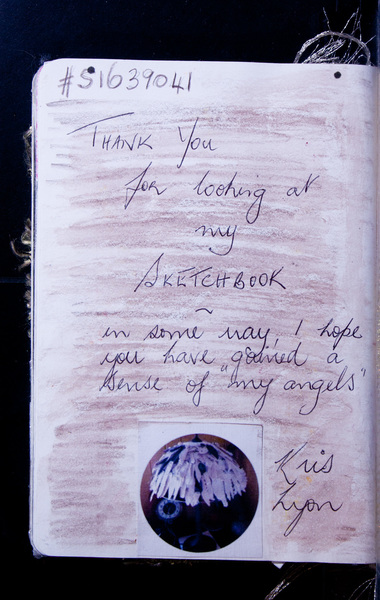 #S1639041
THANK You
for looking at
my
SKETCHBOOK
~
in some way, I hope
you have gained a
sense of "my angels"
Kris
Lyon